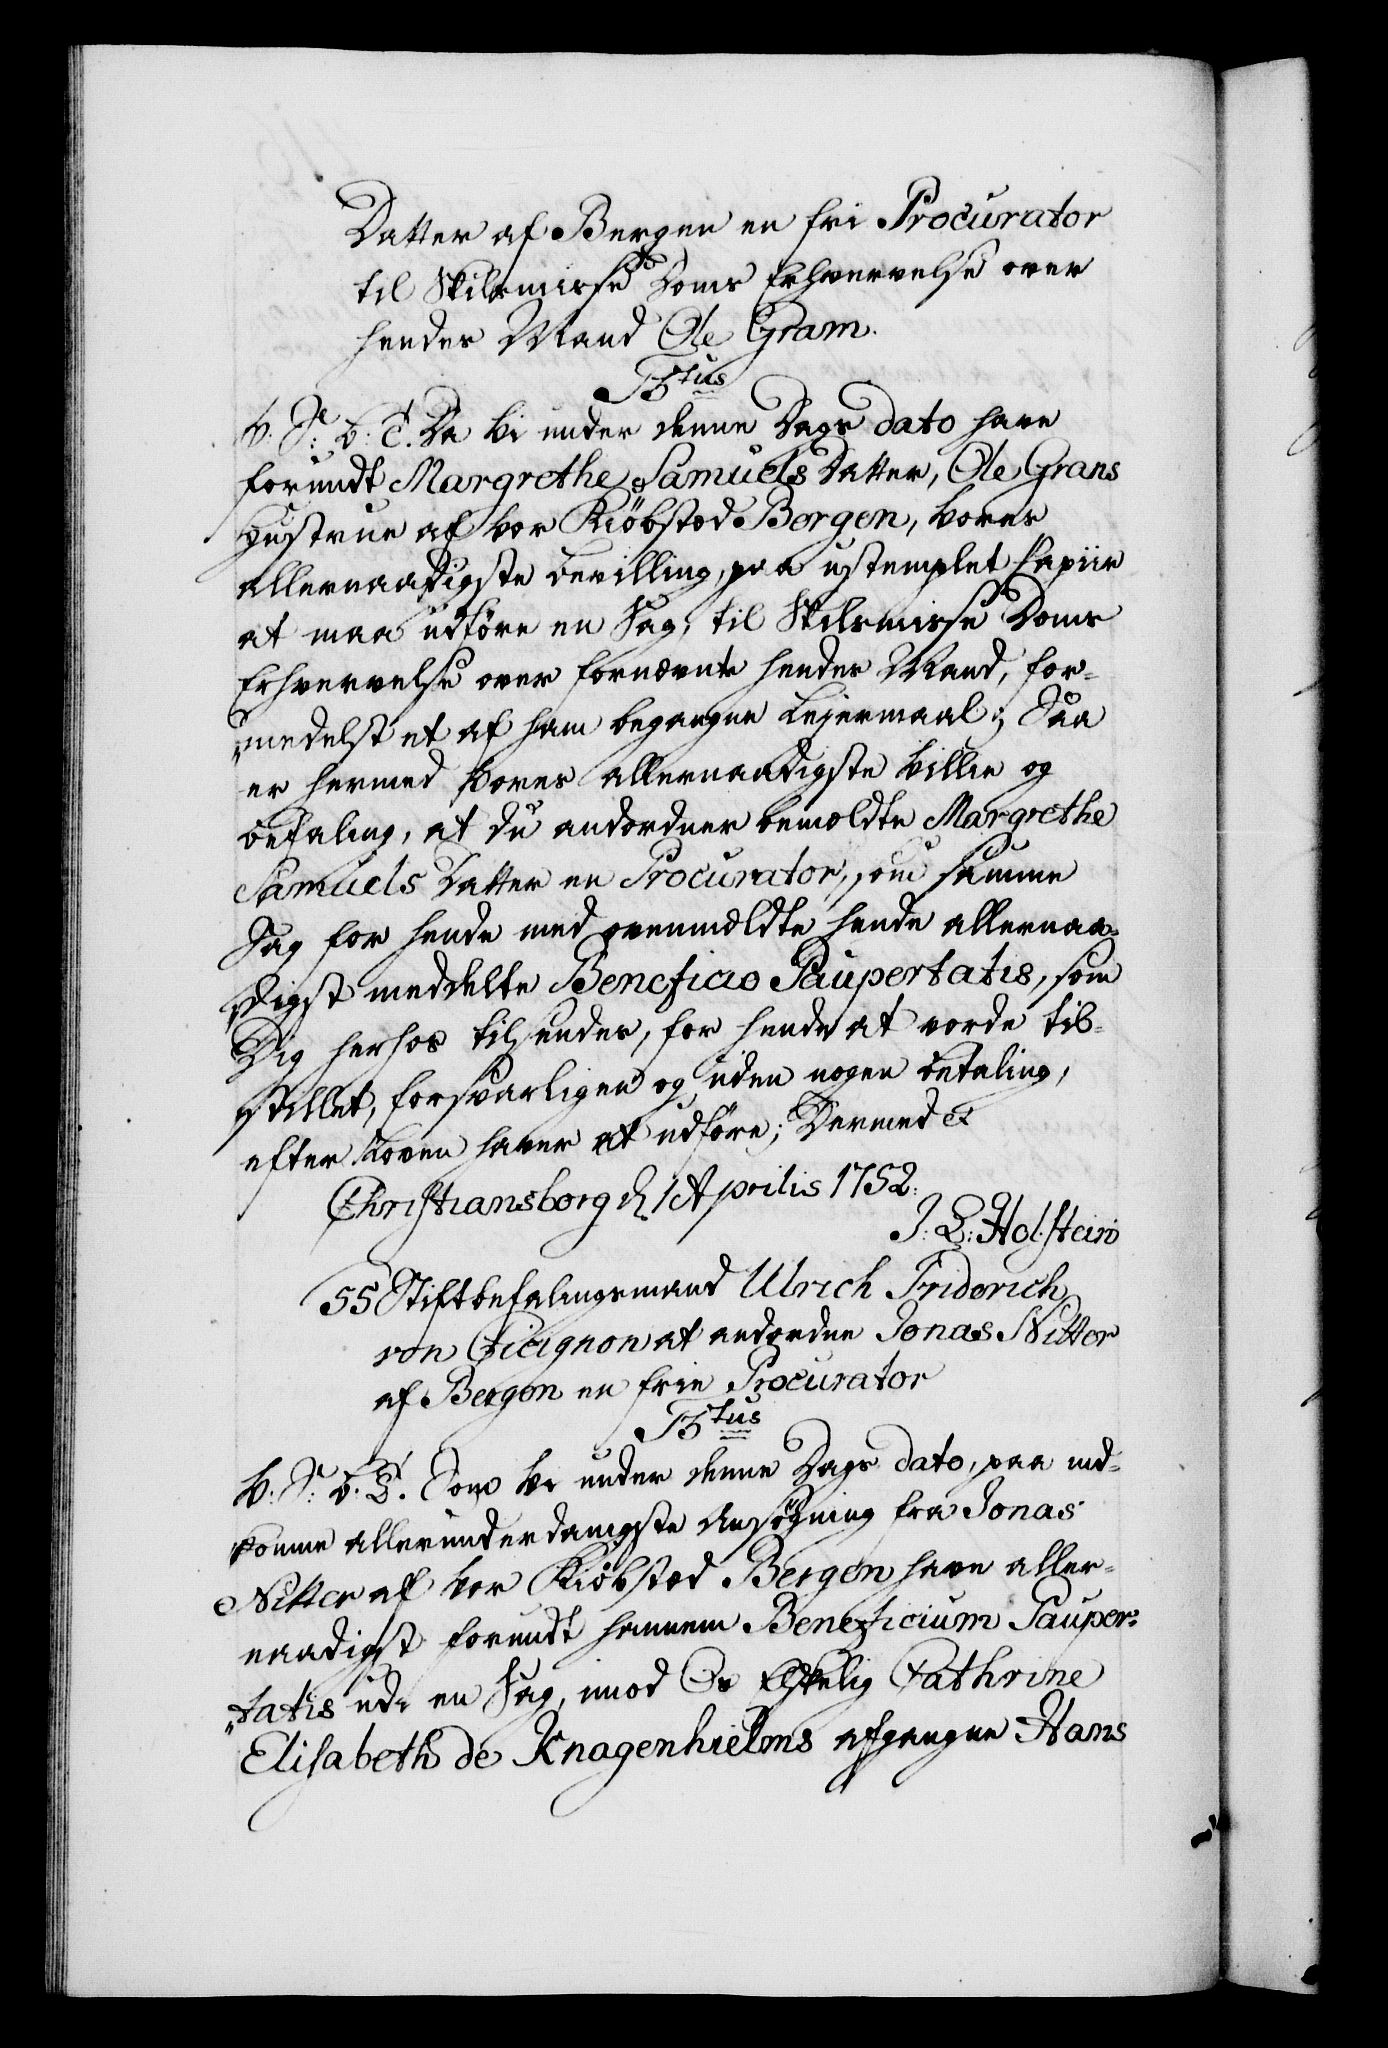 Datter af Bergen en fri Procurator
til Skilsmisse Doms Erhvervelse over
hendes Mand Ole Gram.
F5tus
V. S: V: C. Da Vi under denne Dags dato have
forundt Margrethe Samuels Datter, Ole Grans
Hustrue af vor Kiöbsted Bergen, vores
allernaadigste bevilling, paa ustemplet Papiir
at maa udföre en Sag, til Skilsmisse Doms
Erhvervelse over fornævnte hendes Mand, for-
„medelst et af ham begangne Lejermaal; Saa
er hermed Vores allernaadigste Villie og
befaling, at du anordner bemeldte Margrethe
Samuels Datter en Procurator, som samme
Sag for hende med ovenmeldte hende allernaa-
„digst meddelte Beneficio Paupertatis, som
Dig herhos tilsendes, for hende at vorde til-
„stillet, forsvarligen og uden nogen betaling,
efter Loven haver at udföre; Dermed &
Christiansborg d. 1 Aprilis 1752.
J: L: Holstein
55 Stiftbefalingsmand Ulrich Friderich
von Cicignon at anordne Jonas Nitter
af Bergen en frie Procurator
F5tus
V: S: V: T. Som Vi under denne Dags dato, paa ind-
komne allerunderdanigste Ansögning fra Jonas
Nitter af vor Kiöbsted Bergen have aller-
naadigst forundt hannem Beneficium Pauper-
„tatis udi en Sag, imod Os Elskelig Cathrine
Elisabeth de Knagenhielms afgangne Hans